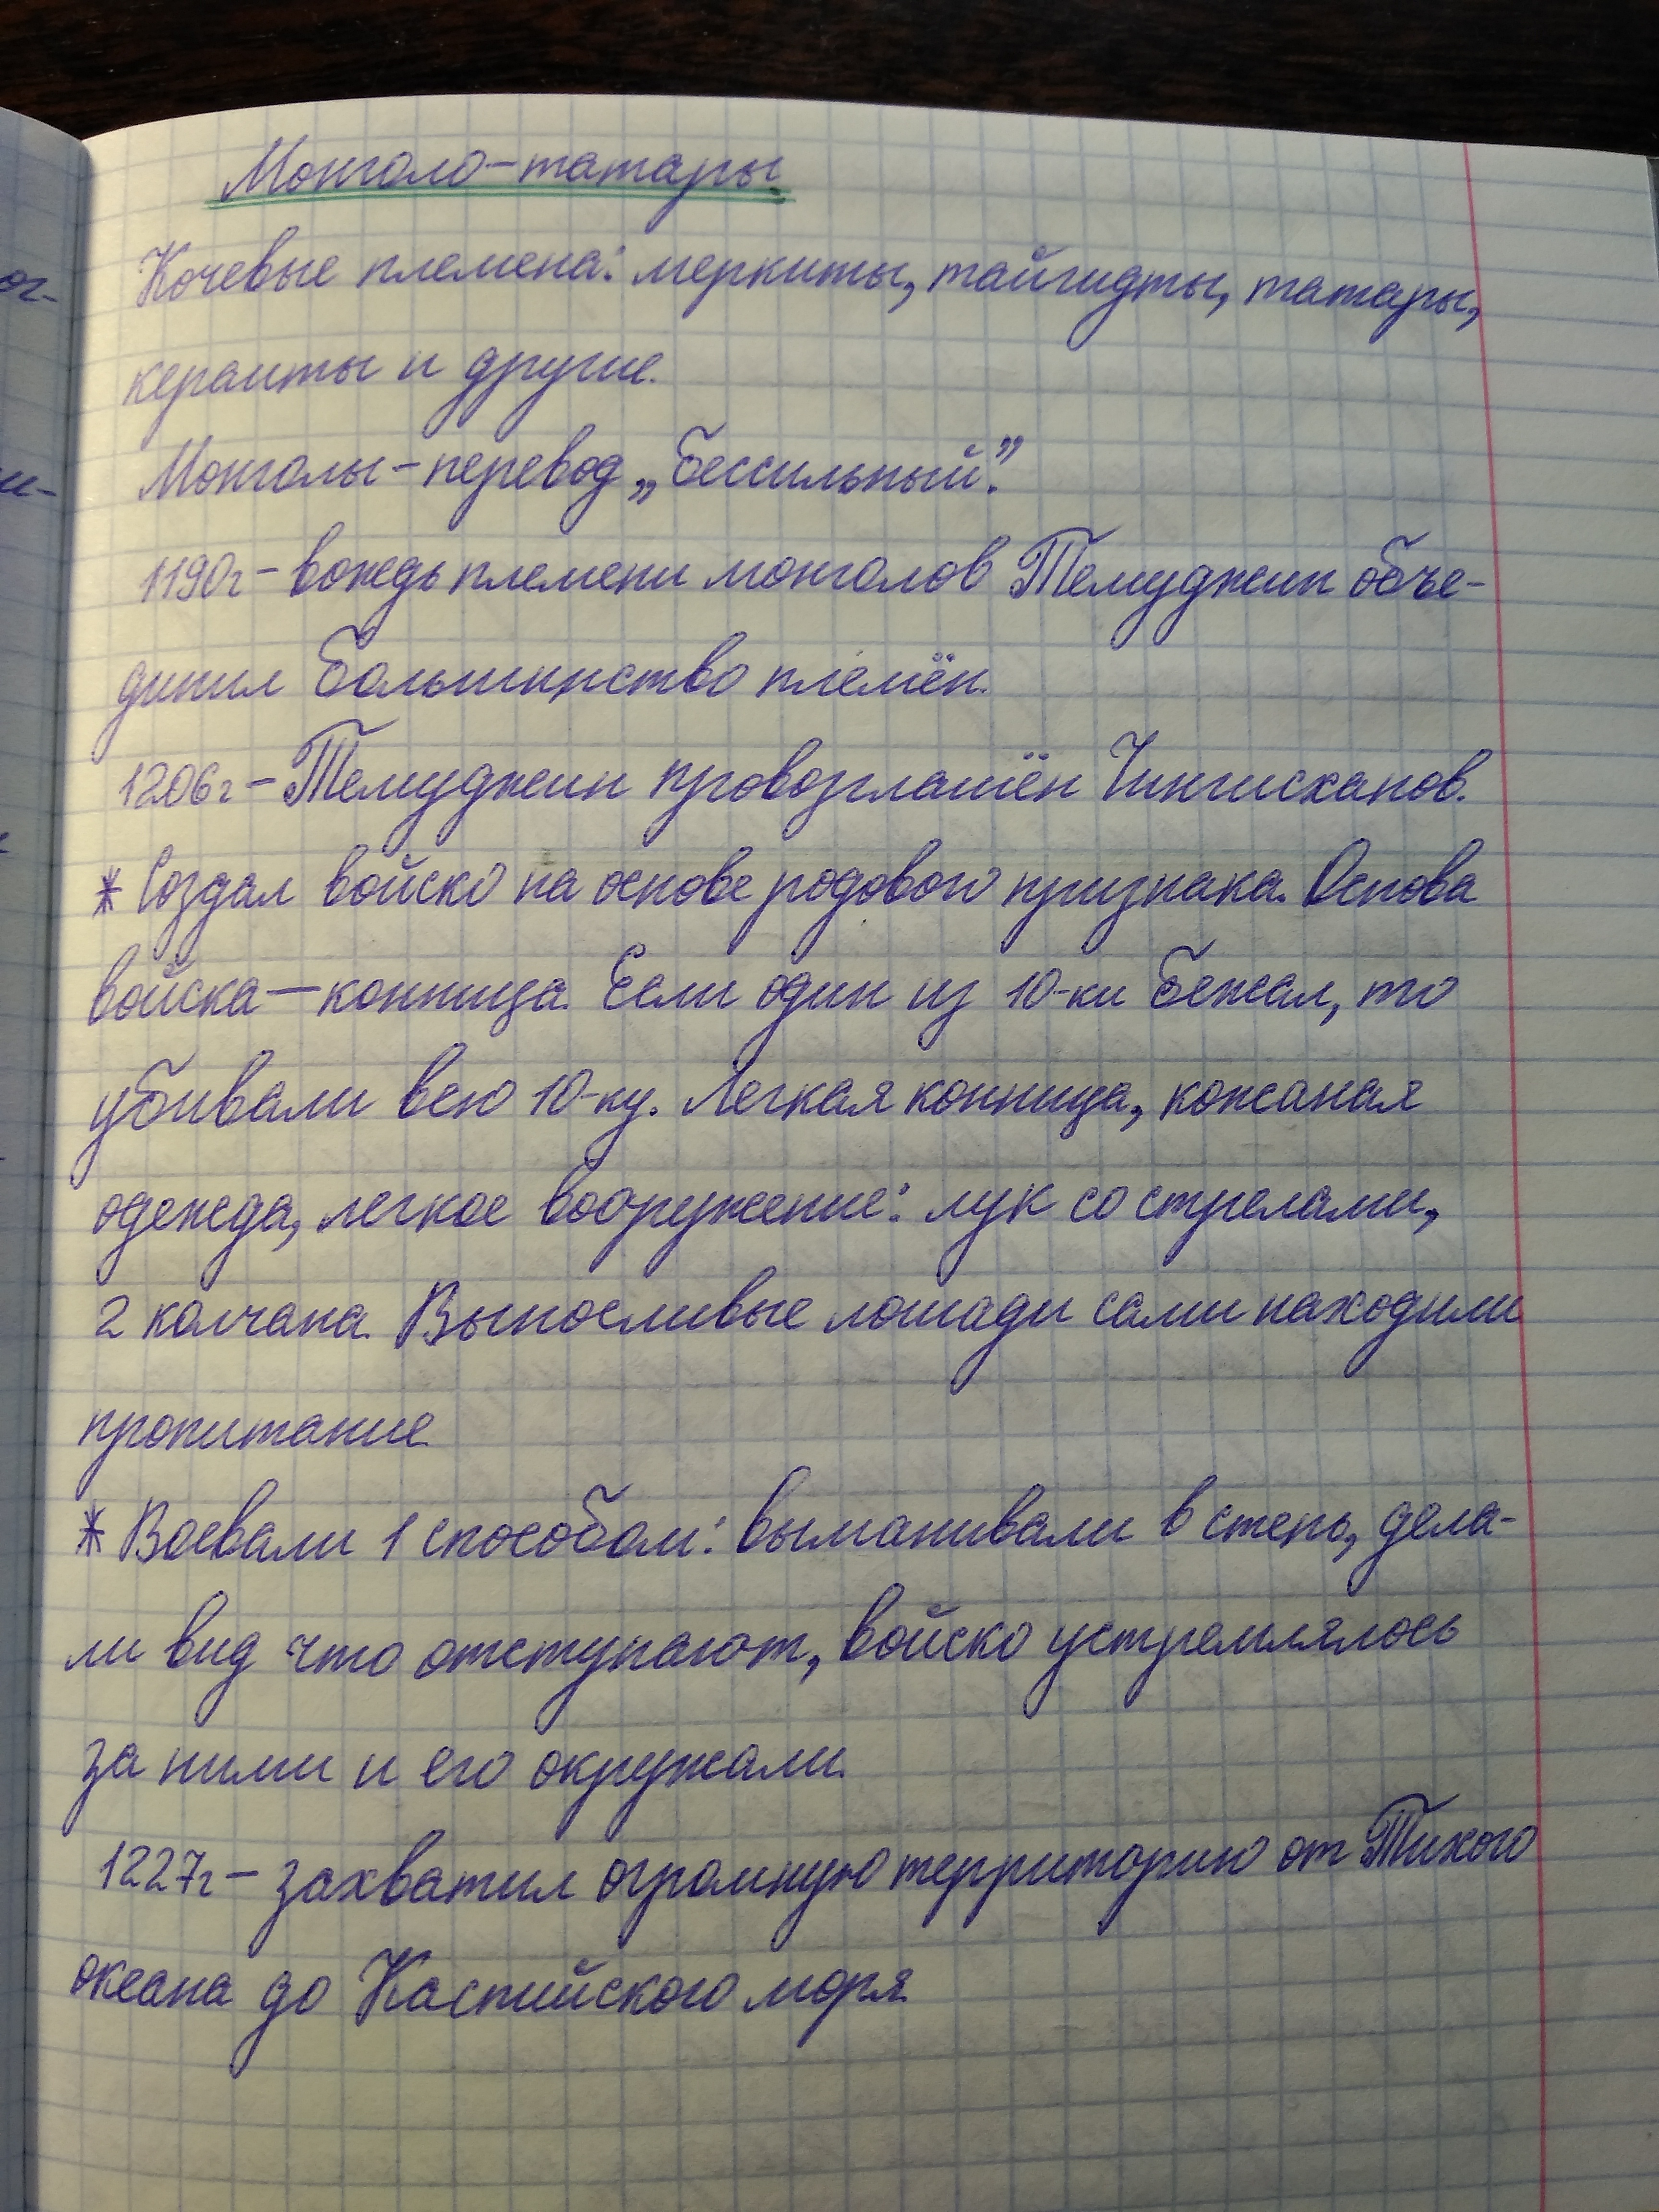 Монголо-татары
Кочевые племена: меркиты, тайгидты, татары,
кераиты и другие.
Монголы - перевод „Бессильный".
1190г - вождь племени монголов Темуджин объе-
динил большинство племён.
1206г - Темуджин провозглашён Чингисханов.
* Создал войско на основе родового признака. Основа
войска — конница. Если один из 10-ки бежал, то
убивали всю 10-ку. Легкая конница, кожаная
одежда, легкое вооружение: лук со стрелами,
2 колчана. Выносливые лошади сами находили
пропитание.
* Воевали 1 способом: выманивали в степь, дела-
ли вид что отступают, войско устремлялось
за ними и его окружали.
1227г - захватил огромную территорию от Тихого
океана до Каспийского моря.
ог-
и-